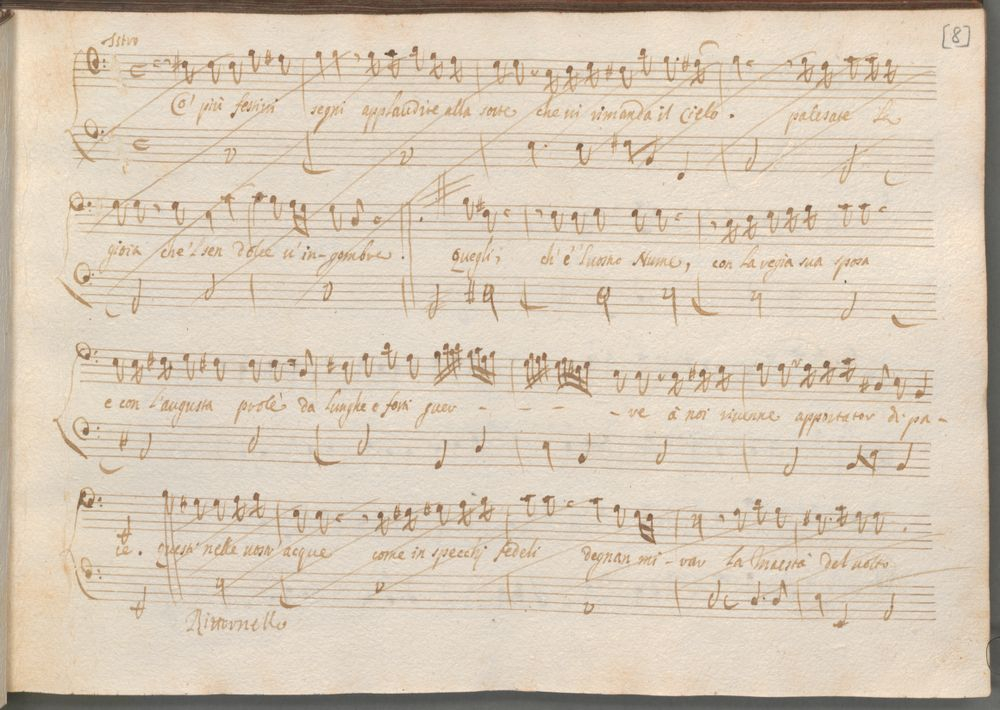 [8]
Istro
Co' più festivi segni applaudite alla sorte che vi rimanda il Cielo. palesate la
gioia che'l sen dolce v'in-gombra. Quegli, ch'è'l vostro Nume, con la regia sua sposa
e con l'augusta prole da lunghe e forti guer - - - - re à noi rivenne apportator di pa-
ce. questi nelle vostr'acque come in specchi fedeli degnan mi-rar la Maestà del volto
Ritornello